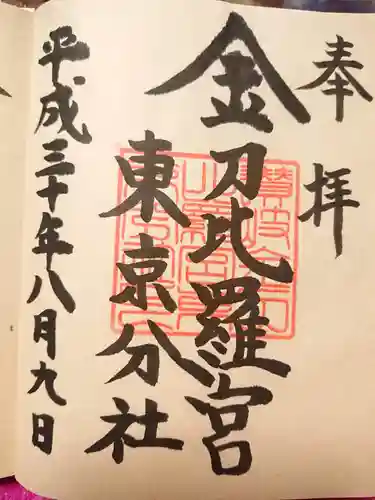 奉拝
金刀比羅宮
東京分社
平成三十年八月九日